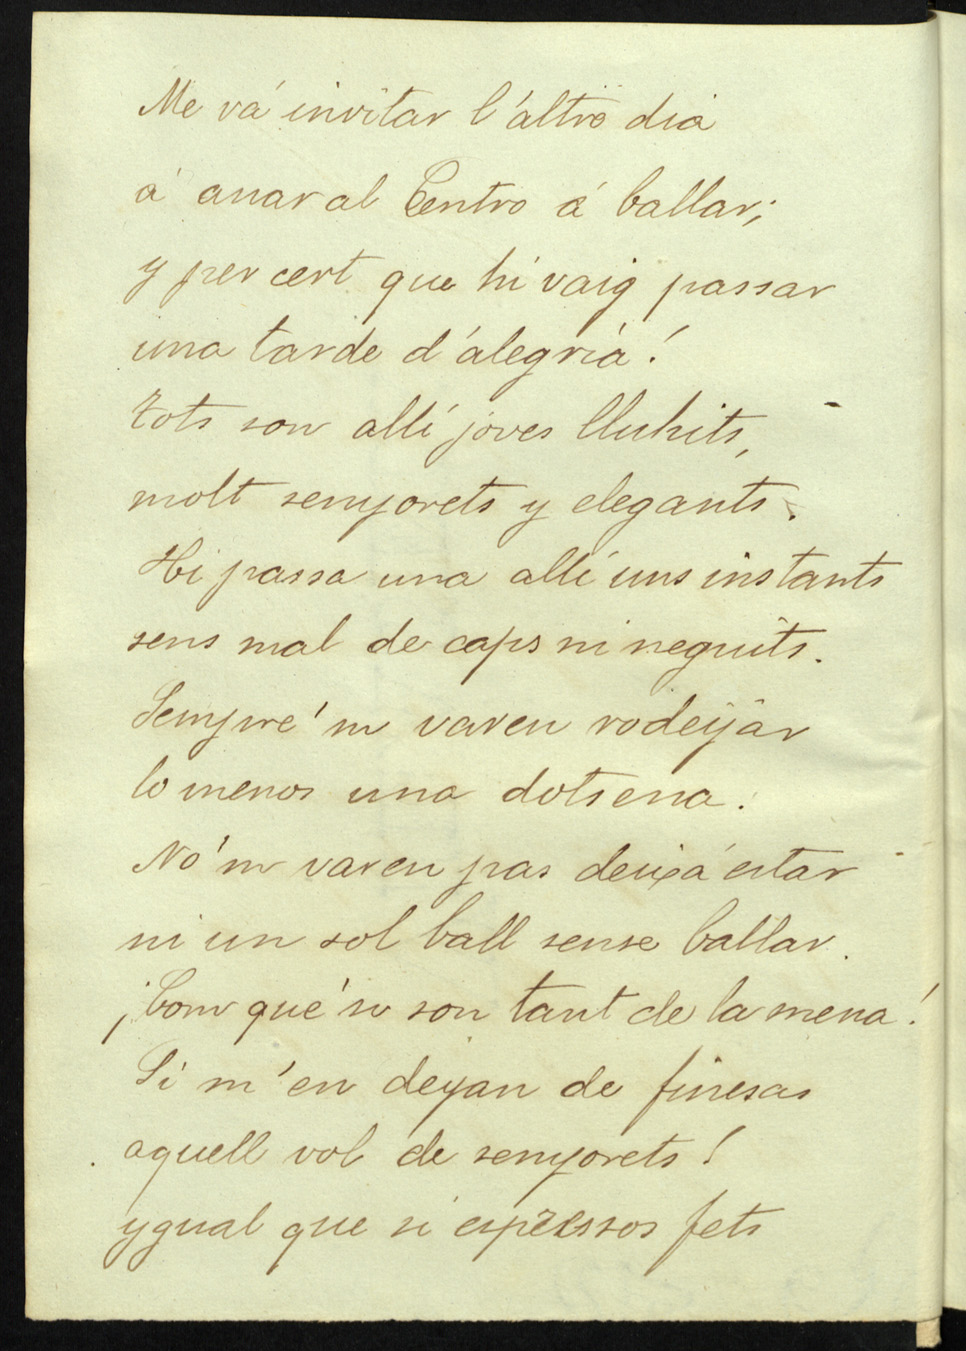 Me vá invitar l'altre dia
á anar al Centro á ballar;
y per cert que hi vaig passar
una tarde d'alegria!
Tots son allí joves lluhits,
molt senyorets y elegants.
Hi passa una allí uns instants
sens mal de caps ni neguits.
Sempre 'm varen rodejar
lo menos una dotsena.
No 'm varen pas deixá estar
ni un sol ball sense ballar.
¡Com que 'n son tant de la mena!
Si m'en deyan de finesas
aquell vol de senyorets!
ygual que si espressos fets